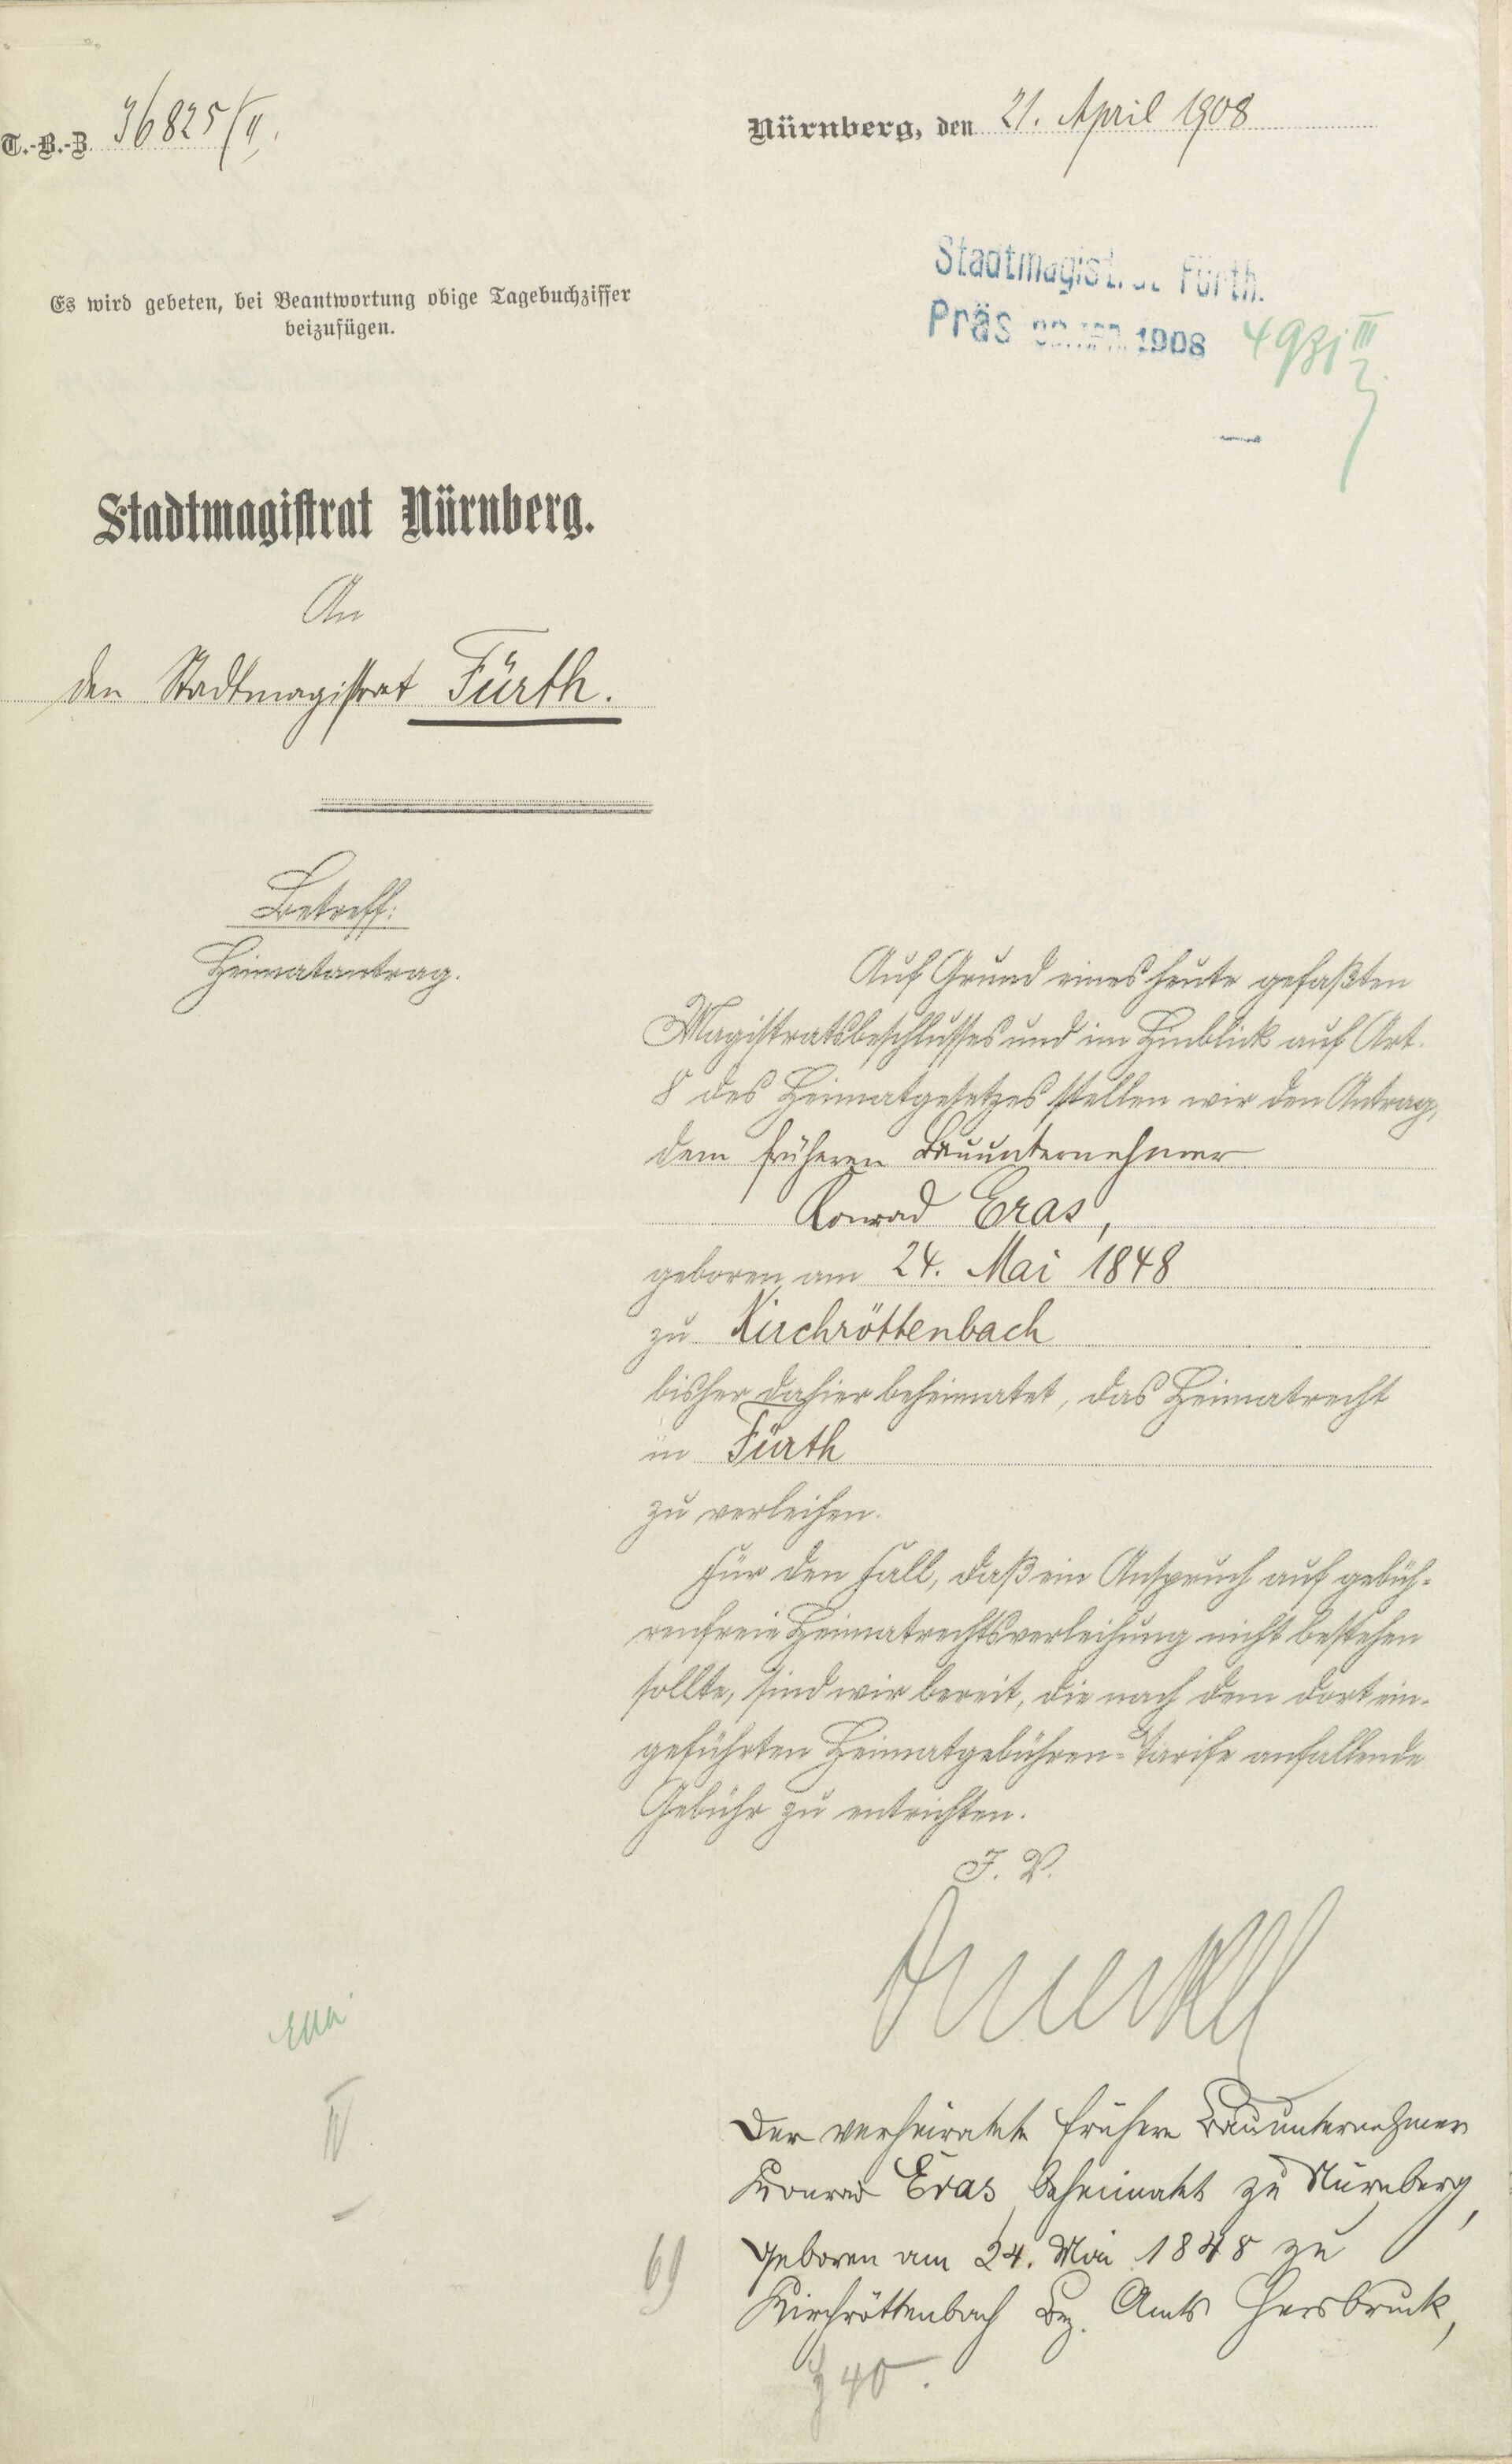 T.-B.-Z. 36825/II.
Nürnberg, den 21. April 1908
Es wird gebeten, bei Beantwortung obige Tagebuchziffer
beizufügen.
Stadtmagistrat Fürth.
Präs 1908
Stadtmagistrat Nürnberg.
An
den Stadtmagistrat Fürth.
Betreff:
Heimatantrag.
Auf Grund eines heute gefaßten
Magistratsbeschlusses und im Hinblick auf Art.
8 des Heimatgesetzes stellen wir den Antrag,
dem früheren Bauunternehmer
Konrad Eras,
geboren am 24. Mai 1848
zu Kirchröttenbach
bisher dahier beheimatet, das Heimatrecht
in Fürth
zu verleihen.
Für den Fall, daß ein Anspruch auf gebüh-
renfreie Heimatrechtsverleihung nicht bestehen
sollte, sind wir bereit, die nach dem dort ein-
geführten Heimatgebühren-Tarife anfallende
Gebühr zu entrichten.
J. V.
IV
Der verheiratete frühere Bauunternehmer
Konrad Eras, beheimatet zu Nürnberg,
geboren am 24. Mai 1848 zu
Kirchröttenbach Bez. Amts Hersbruck,
40.